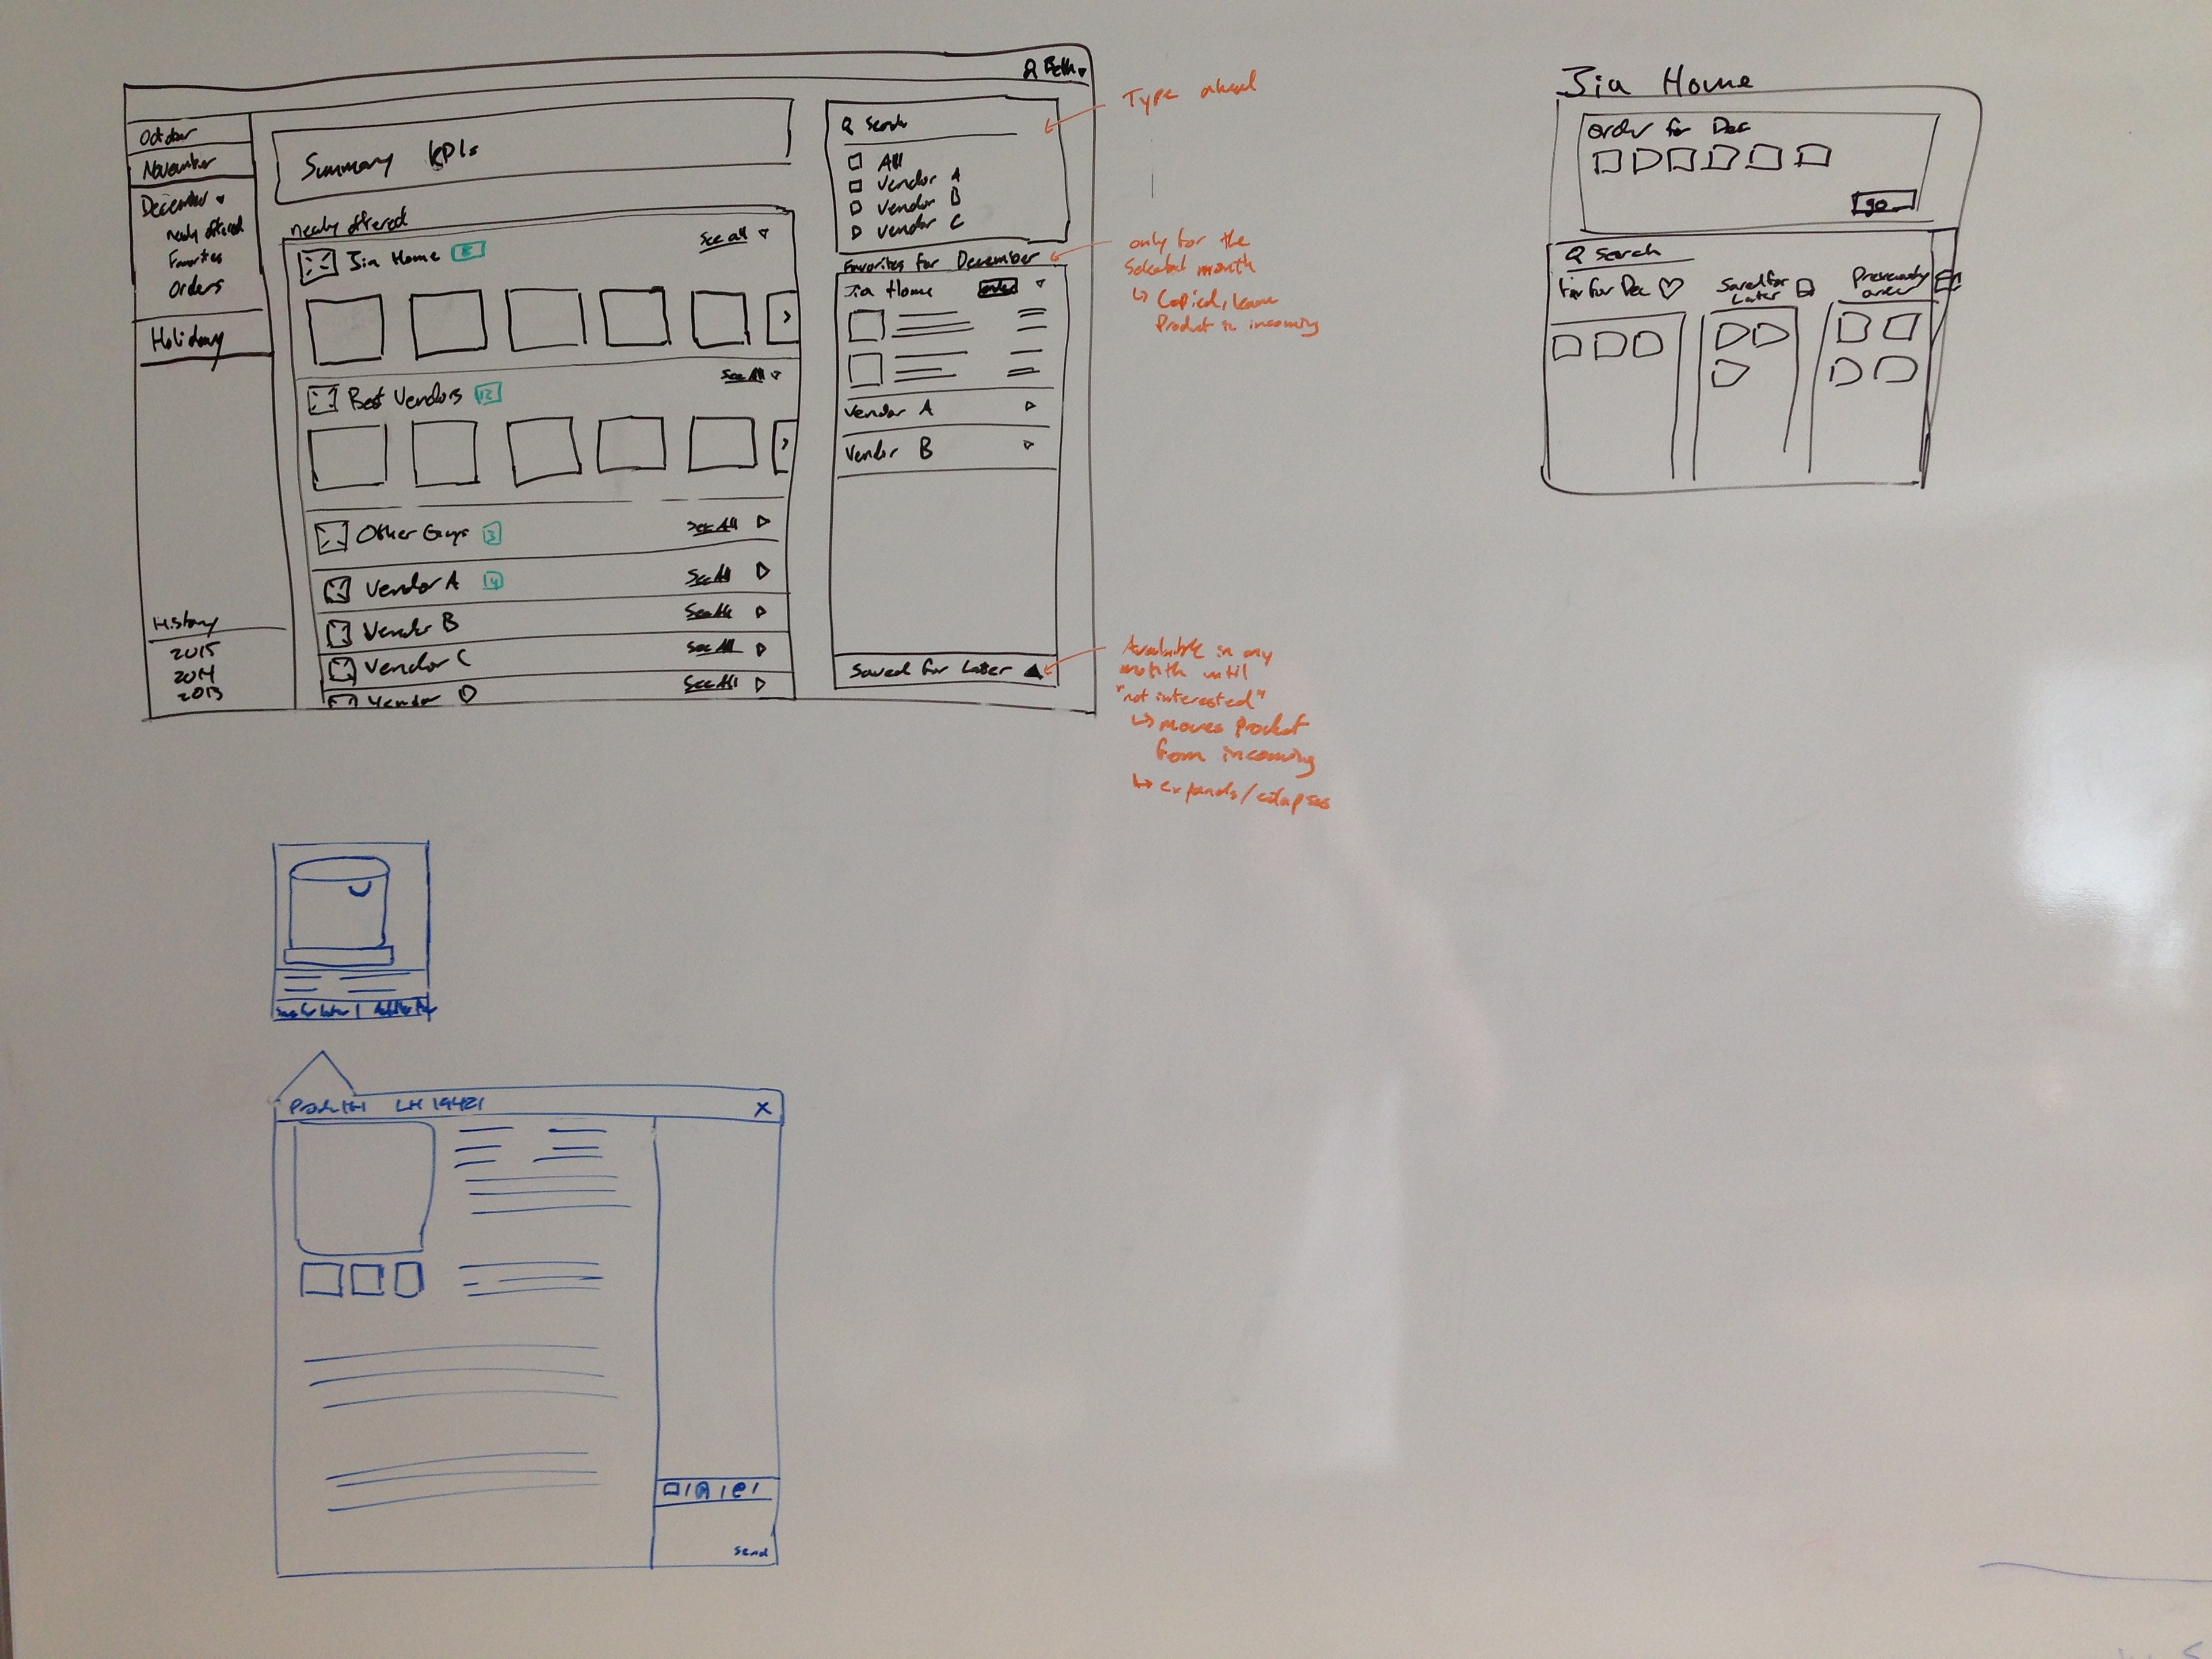 Beth
October
November
December
newly offered
Favorites
Orders
Holiday
History
2015
2014
2013
Summary KPIs
newly offered
Jia Home
See all
Best Vendors 12
See All
Other Guys 3
See All
Vendor A 4
See All
Vendor B
See All
Vendor C
See All
Vendor D
See All
Search
All
Vendor A
Vendor B
Vendor C
Favorites for December
Jia Home order
Vendor A
Vendor B
Saved for Later
Type ahead
only for the
Selected month
↳ Copied, leave
Product in incoming
Available in any
month until
"not interested"
↳ moves Product
from incoming
↳ expands/collapses
Jia Home
order for Dec
go
Search
Fav for Dec
Saved for
Later
Previously
order
Save for Later |
LH 19421 X
Send